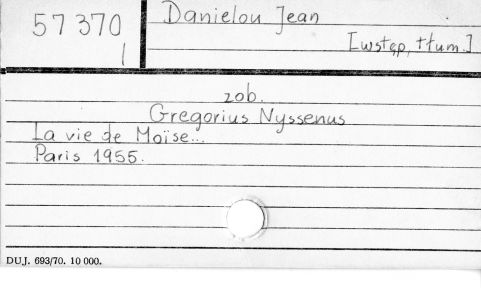 57 370
I
Danielou Jean
[wstęp, tłum.]
zob.
Gregorius Nyssenus
La vie de Moïse...
Paris 1955.
DUJ. 693/70. 10 000.